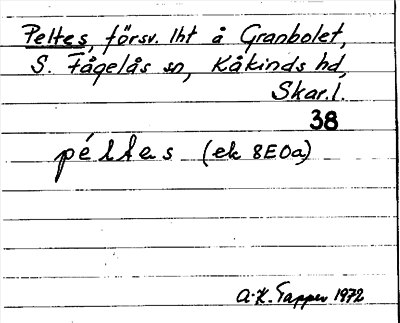 Peltes, försv. lht å Granbolet,
S. Fågelås sn, Kåkinds hd,
Skar.l.
38
péltes (ek 8E0a)
A-K. Tapper 1972